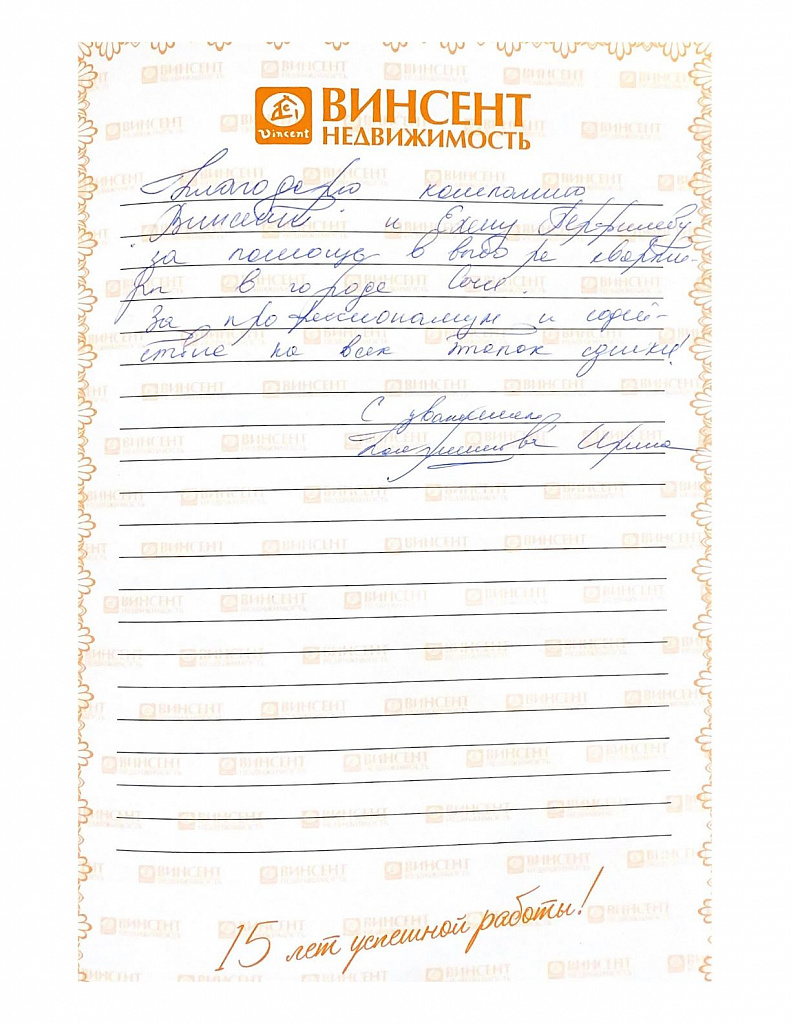 Vincent
ВИНСЕНТ
НЕДВИЖИМОСТЬ
Благодарю компанию
"Винсент" и Елену Перфилеву
за помощь в выборе кварти-
ры в городе Сочи.
За профессионализм и содей-
ствие на всех этапах сделки!
С уважением,
Ирина
15 лет успешной работы!